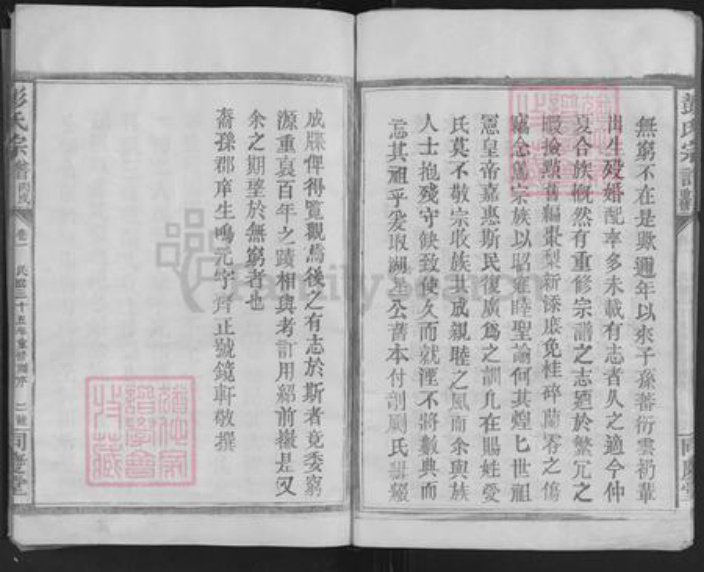 無窮不在是歟邇年以來子孫蕃衍雲礽輩
出生歿婚配率多未載有志者久之適今仲
夏合族慨然有重修宗譜之志廼於繁冗之
暇撿點舊編棗梨新鍥庶免桂碎蘭零之傷
竊念篤宗族以昭雍睦聖諭何其煌匕世祖
憲皇帝嘉惠斯民復廣為之訓凡在賜姓受
氏莫不敬宗收族共成親睦之風而余與族
人士抱殘守缺致使久而就湮不將數典而
忘其祖乎爰取湖星公舊本付剞劂氏
成牒俾得覽觀焉後之有志於斯者竟委窮
源重裒百年之蹟相與考訂用紹前徽是又
余之期望於無窮者也
裔孫郡庠生鳴元字齊正號鏡軒敬撰
彭氏宗譜
同慶堂
彭氏宗譜
卷一
民國三十五年重修
同慶堂
FamilySearch